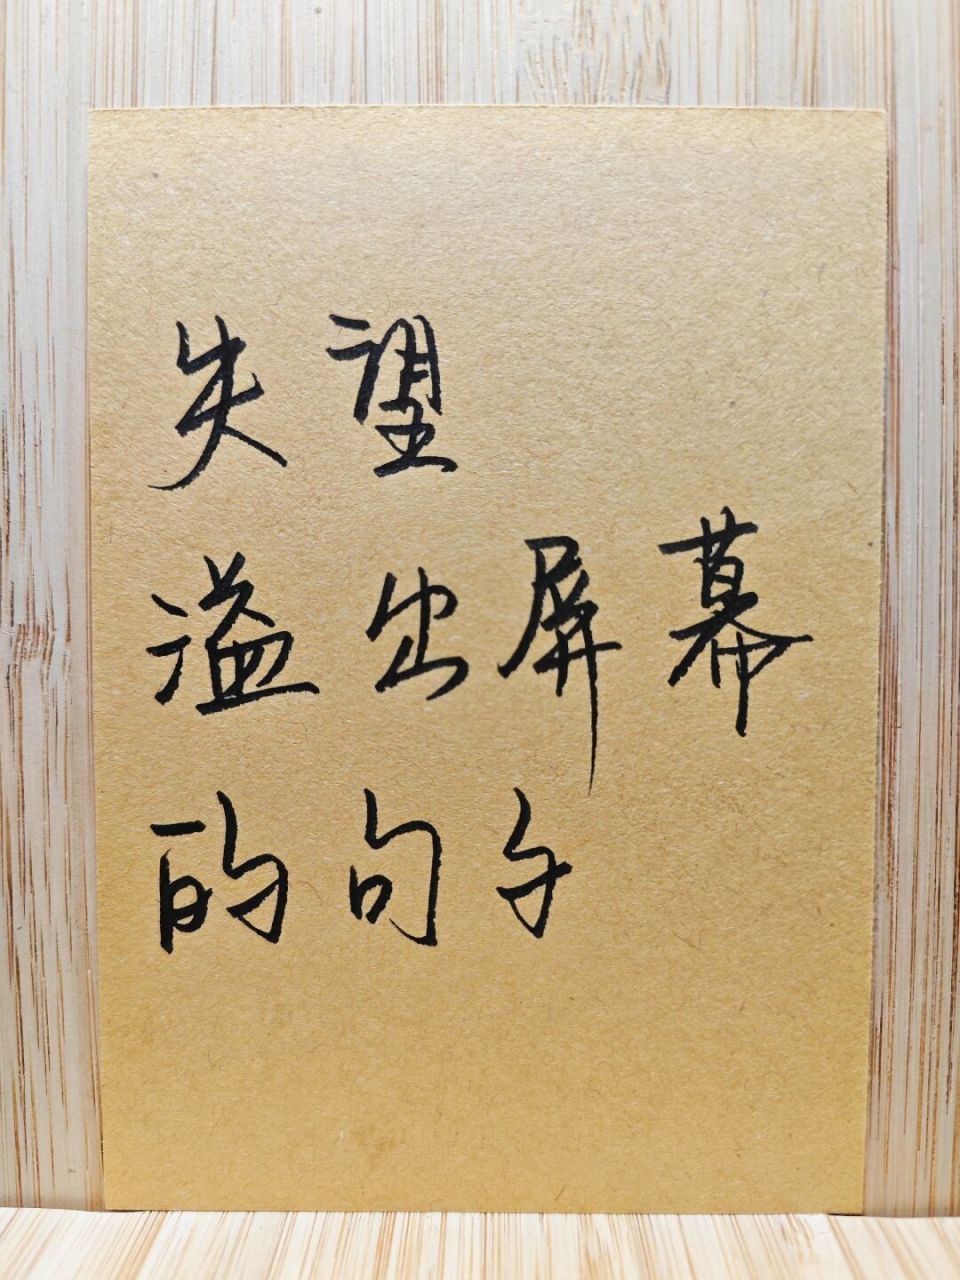 失望
溢出屏幕
的句子